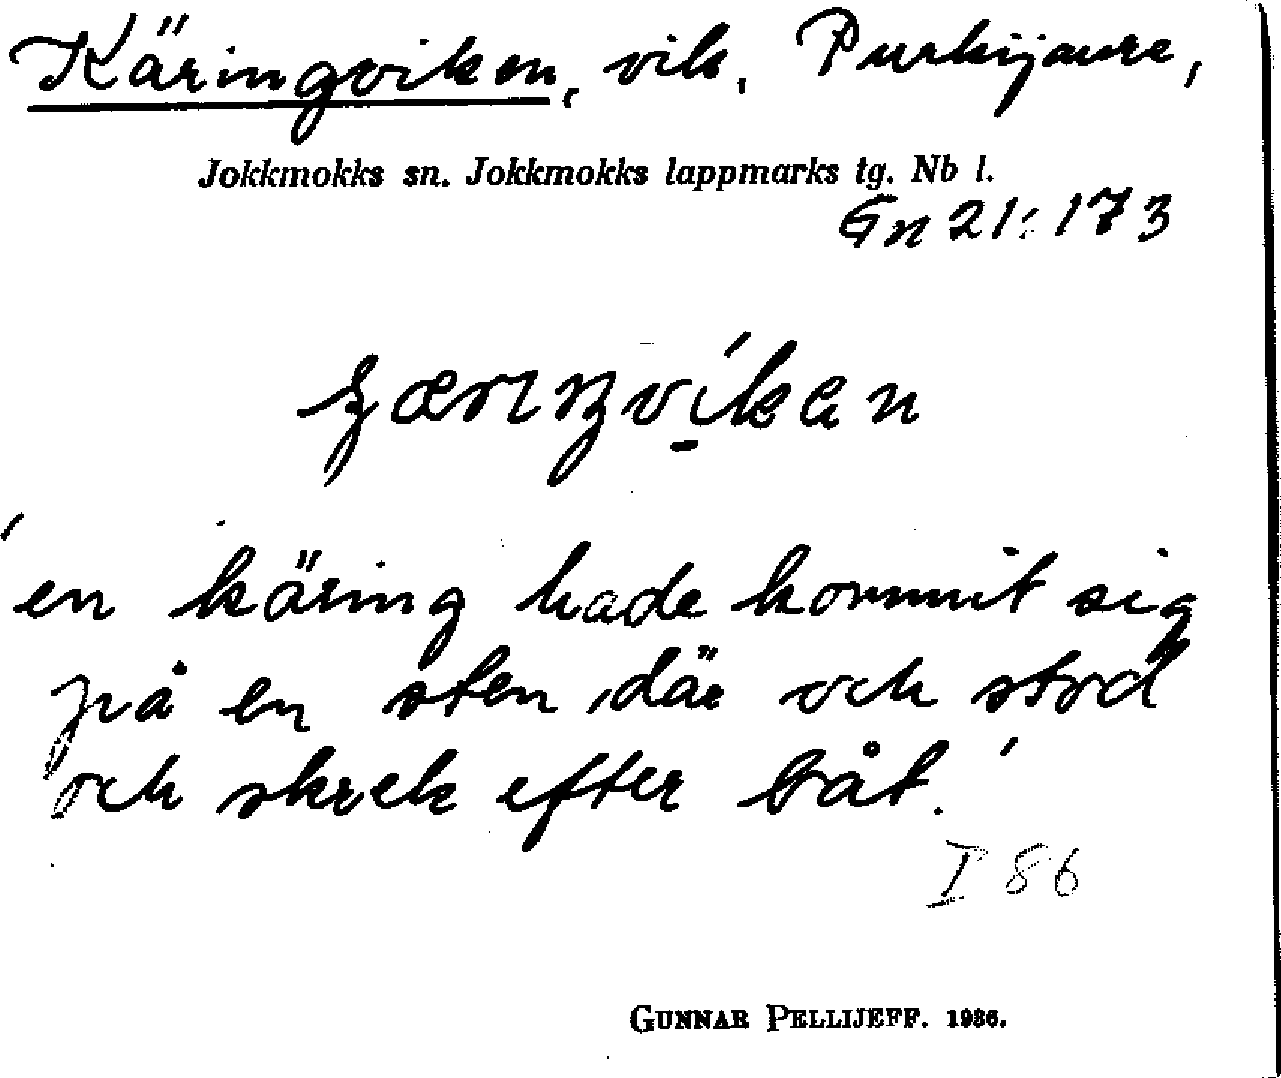 Käringviken, vik, Purkijaure,
Jokkmokks sn. Jokkmokks lappmarks tg. Nb l.
Gn 21:173
'en käring hade kommit sig
på en sten där och stod
och skrek efter båt.'
I 86
GUNNAR PELLIJEFF. 1936.